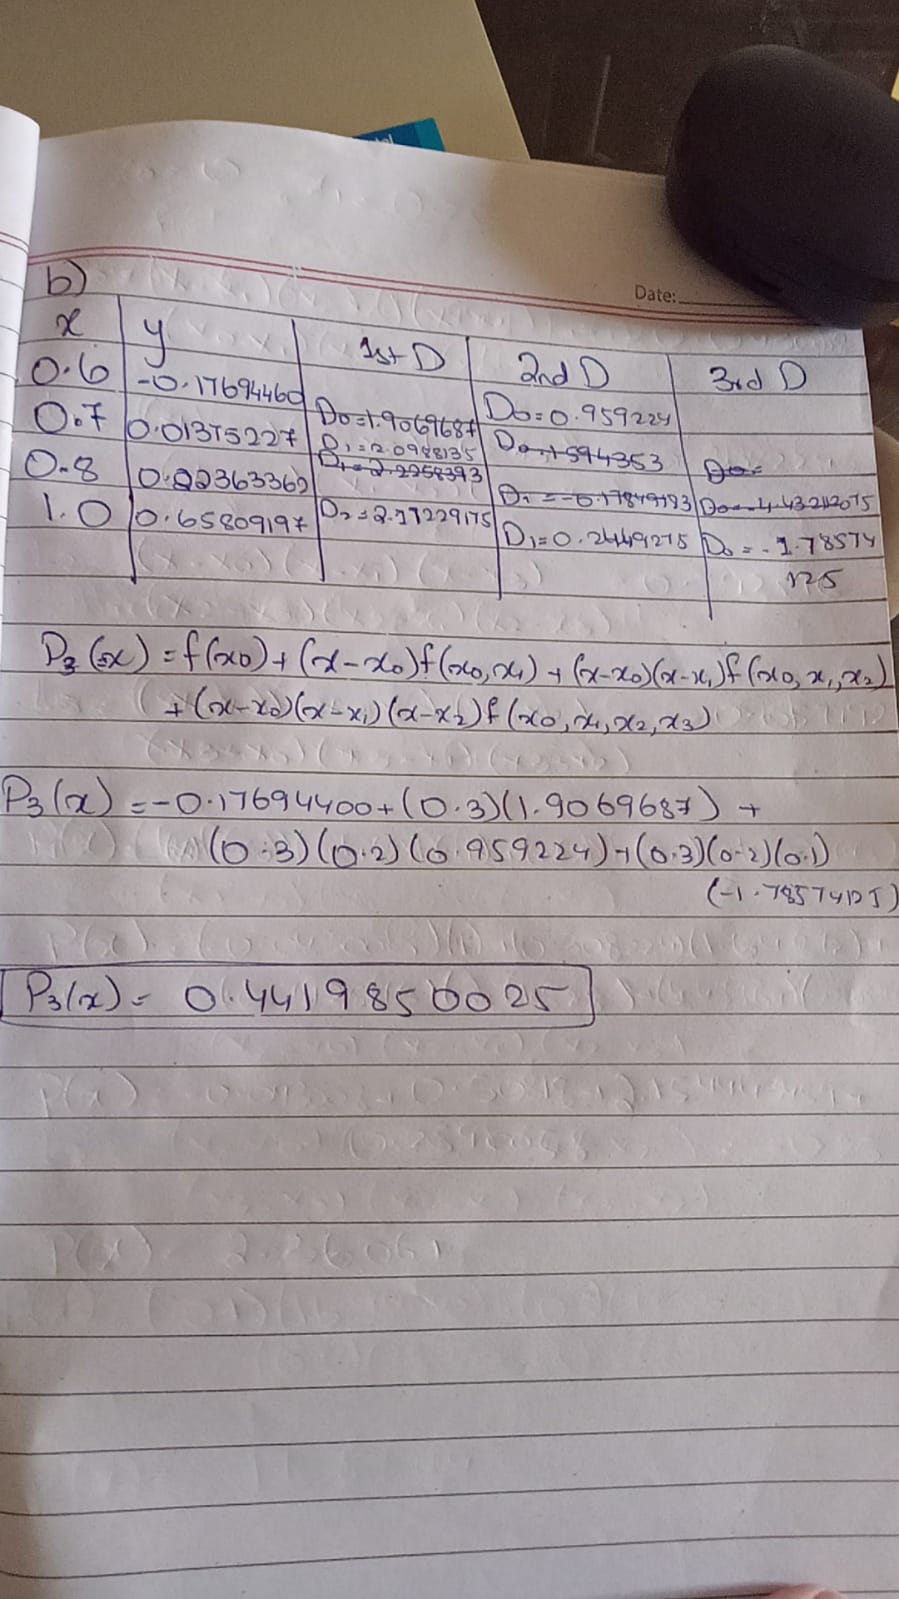 Date:
b)
x y 1st D 2nd D 3rd D
0.6 -0.17694460
D0=1.9069687 D0=0.959224
0.7 0.01375227
D1=2.0988135 D0=1.594353 D0=
D1=2.2258393
0.8 0.22363362
D1=-0.17849193 D0=-4.43212075
1.0 0.65809197 D2=2.17229175
D1=0.2449275 D0=-1.78574
125
P3(x)=f(x0)+(x-x0)f(x0,x1)+(x-x0)(x-x1)f(x0,x1,x2)
+(x-x0)(x-x1)(x-x2)f(x0,x1,x2,x3)
P3(x)=-0.17694400+(0.3)(1.9069687)+
(0.3)(0.2)(0.959224)+(0.3)(0.2)(0.1)
(-1.78574125)
P3(x)= 0.4419850025